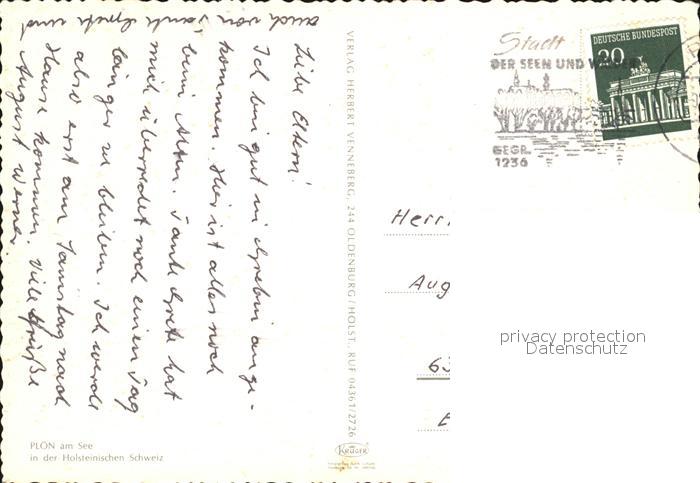 Liebe Eltern!
Ich bin gut in Grebin ange-
kommen. Hier ist alles noch
beim Alten. Tante Grete hat
mich überredet noch einen Tag
länger zu bleiben. Ich werde
also erst am Samstag nach
Hause kommen. Viele Grüße
August Werner.
auch von Tante Grete und
VERLAG HERBERT VENNEBERG, 244 OLDENBURG/HOLST., RUF 04361/2726
Stadt
DER SEEN UND WÄLDER
GEGR.
1236
DEUTSCHE BUNDESPOST
20
Herrn
Aug
63
privacy protection
Datenschutz
PLÖN am See
in der Holsteinischen Schweiz
KRÜGER